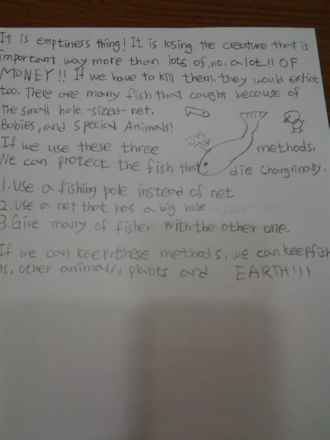 It is emptiness thing! It is losing the creature that is
important way more than lots of, no, a lot!! OF
MONEY!! If we have to kill them, they would extinct
too. There are many fish that caught because of
the small hole-sized-net.
Babies, and special Animals!
If we use these three methods.
We can protect the fish that die
1. Use a fishing pole instead of net
2. Use a net that has a big hole
3. Give many of fisher with the other one.
If we can keep these methods, we can keep fish
is, other animals, plants and EARTH!!!